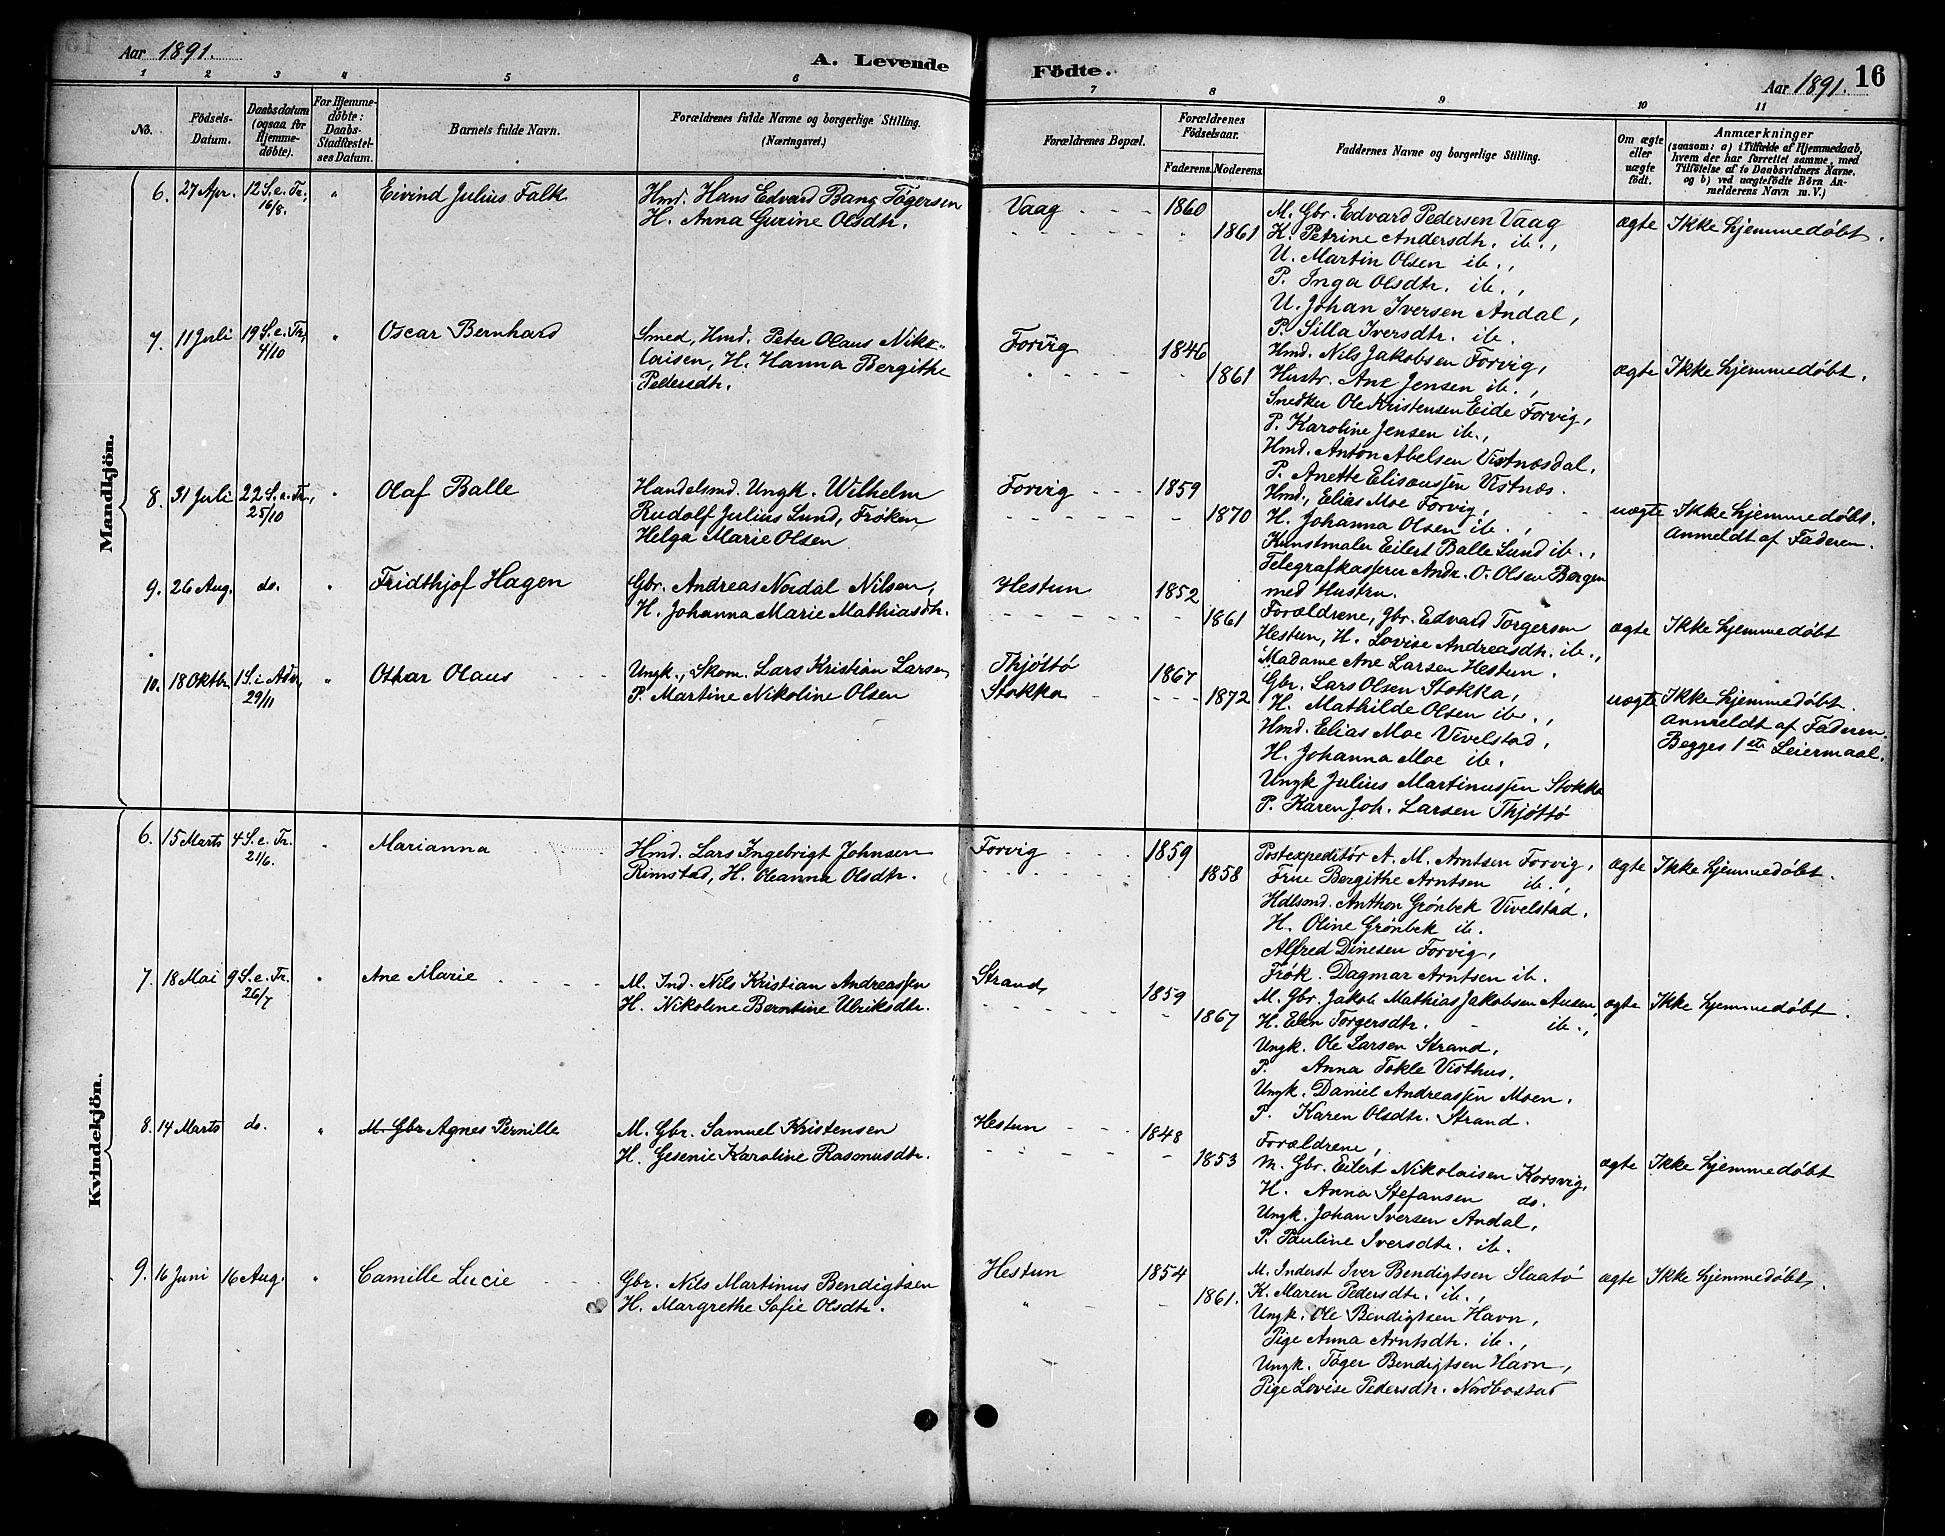 Aar 1891.
A. Levende Födte.
Aar 1891. 16
1 2 3 4 5 6 7 8 9 10 11
No.
Födsels-Datum.
Daabsdatum (ogsaa for Hjemme-döbte).
For Hjemme-döbte: Daabs-Stadfæstel-ses Datum.
Barnets fulde Navn.
Forældrenes fulde Navne og borgerlige Stilling. (Næringsvei.)
Forældrenes Bopæl.
Forældrenes Födselsaar.
Faderens. Moderens.
Faddernes Navne og borgerlige Stilling.
Om ægte eller uægte födt.
Anmærkninger
(saasom: a) i Tilfælde af Hjemmedaab,
hvem der har forrettet samme, med
Tilföielse af to Daabsvidners Navne.
og b) ved uægtefödte Börn An-
melderens Navn m. V.)
Mandkjön.
6. 27 Apr. 12 S. e. Tr. 16/8. " Eivind Julius Falk
Hmd. Hans Edvard Bang Tøgersen
H. Anna Gurine Olsdtr.
Vaag 1860
1861
M. Gbr. Edvard Pedersen Vaag
K. Petrine Andersdtr. ib.,
U. Martin Olsen ib.,
P. Inga Olsdtr. ib.,
U. Johan Iversen Andal,
P. Silla Iversdtr. ib.
ægte Ikke hjemmedøbt.
7. 11 Juli 19 S. e. Tr. 4/10 " Oscar Bernhard
Smed, Hmd. Peter Olaus Niko-
laisen, H. Hanna Bergithe
Pedersdtr.
Forvig 1846
1861
Hmd. Nils Jakobsen Forvig,
Hustr. Ane Jensen ib.,
Snedker Ole Kristensen Eide Forvig,
P. Karoline Jensen ib.,
Hmd. Anton Abelsen Vistnæsdal,
P. Anette Elisæussen Vistnæs.
ægte Ikke hjemmedøbt.
8. 31 Juli 22 S. e. Tr., 25/10 " Olaf Balle
Handelsmd. Ungk. Wilhelm
Rudolf Julius Lund, Frøken
Helga Marie Olsen
Forvig 1859
1870
Hmd., Elias Moe Forvig,
H. Johanna Olsen ib.,
Kunstmaler Eilert Balle Lund ib.,
Telegrafkasserer Andr. O. Olsen Bergen
med Hustru.
uægte Ikke hjemmedøbt.
Anmeldt af Faderen.
9. 26 Aug. do. " Fridthjof Hagen
Gbr. Andreas Nordal Nilsen,
H. Johanna Marie Mathiasdtr.
Hestun 1852
1861
Forældrene, Gbr. Edvard Torgersen
Hestun, H. Lovise Andreasdtr. ib.,
Madame Ane Larsen Hestun.
ægte Ikke hjemmedøbt
10. 18 Oktbr. 1 S. i Adv. 29/11 " Othar Olaus
Ungk., Skom. Lars Kristian Larsen
P. Martine Nikoline Olsen
Thjøttø 1867
Stokka 1872
Gbr. Lars Olsen Stokka,
H. Mathilde Olsen ib.,
Hmd. Elias Moe Vivelstad,
H. Johanna Moe ib.
Ungk Julius Martinussen Stokka
P. Karen Joh. Larsen Thjøttø
uægte Ikke hjemmedøbt.
Anmeldt af Faderen.
Begges 1ste Leiermaal.
Kvindekjön.
6. 15 Marts 4 S. e. Tr. 21/6. " Marianna
Hmd. Lars Ingebrigt Johnsen
Rimstad, H. Oleanna Olsdtr.
Forvig 1859
1858
Postexpeditør A. M. Arntsen Forvig,
Frue Bergithe Arntsen ib.,
Hdlsmd. Anthon Grønbek Vivelstad.
H. Oline Grønbek ib.
Alfred Dinesen Forvig,
Frøk. Dagmar Arntsen ib.
ægte Ikke hjemmedøbt.
7. 18 Mai 9 S. e. Tr. 26/7 " Ane Marie
M. Ind. Nils Kristian Andreassen
H. Nikoline Berntine Ulriksdtr.
Strand 1859
1867
M. Gbr. Jakob Mathias Jakobsen Ausen,
H. Elen Torgersdtr. ib.,
Ungk. Ole Larsen Strand,
P. Anna Tokle Visthus.
Ungk. Daniel Andreassen Moen.
P. Karen Olsdtr. Strand.
ægte Ikke hjemmedøbt.
8. 14 Marts do. " M. Gbr Agnes Pernille
M. Gbr. Samuel Kristensen
H. Gesenie Karoline Rasmusdtr.
Hestun 1848
1853
Forældrene,
M. Gbr. Eilert Nikolaisen Korsvig,
H. Anna Stefansen do.
Ungk. Johan Iversen Andal,
P. Pauline Iversdtr. ib.
ægte Ikke hjemmedøbt
9. 16 Juni 16 Aug. " Camille Lucie
Gbr. Nils Martinus Bendigtsen
H. Margrethe Sofie Olsdtr.
Hestun 1854
" 1861.
M. Inderst Iver Bendigtsen Slaatø
K. Maren Pedersdtr. ib.,
Ungk. Ole Bendigtsen Havn,
Pige Anna Arntsdtr. ib.,
Ungk. Tøger Bendigtsen Havn,
Pige Lovise Pedersdtr. Nordbostad
ægte Ikke hjemmedøbt.